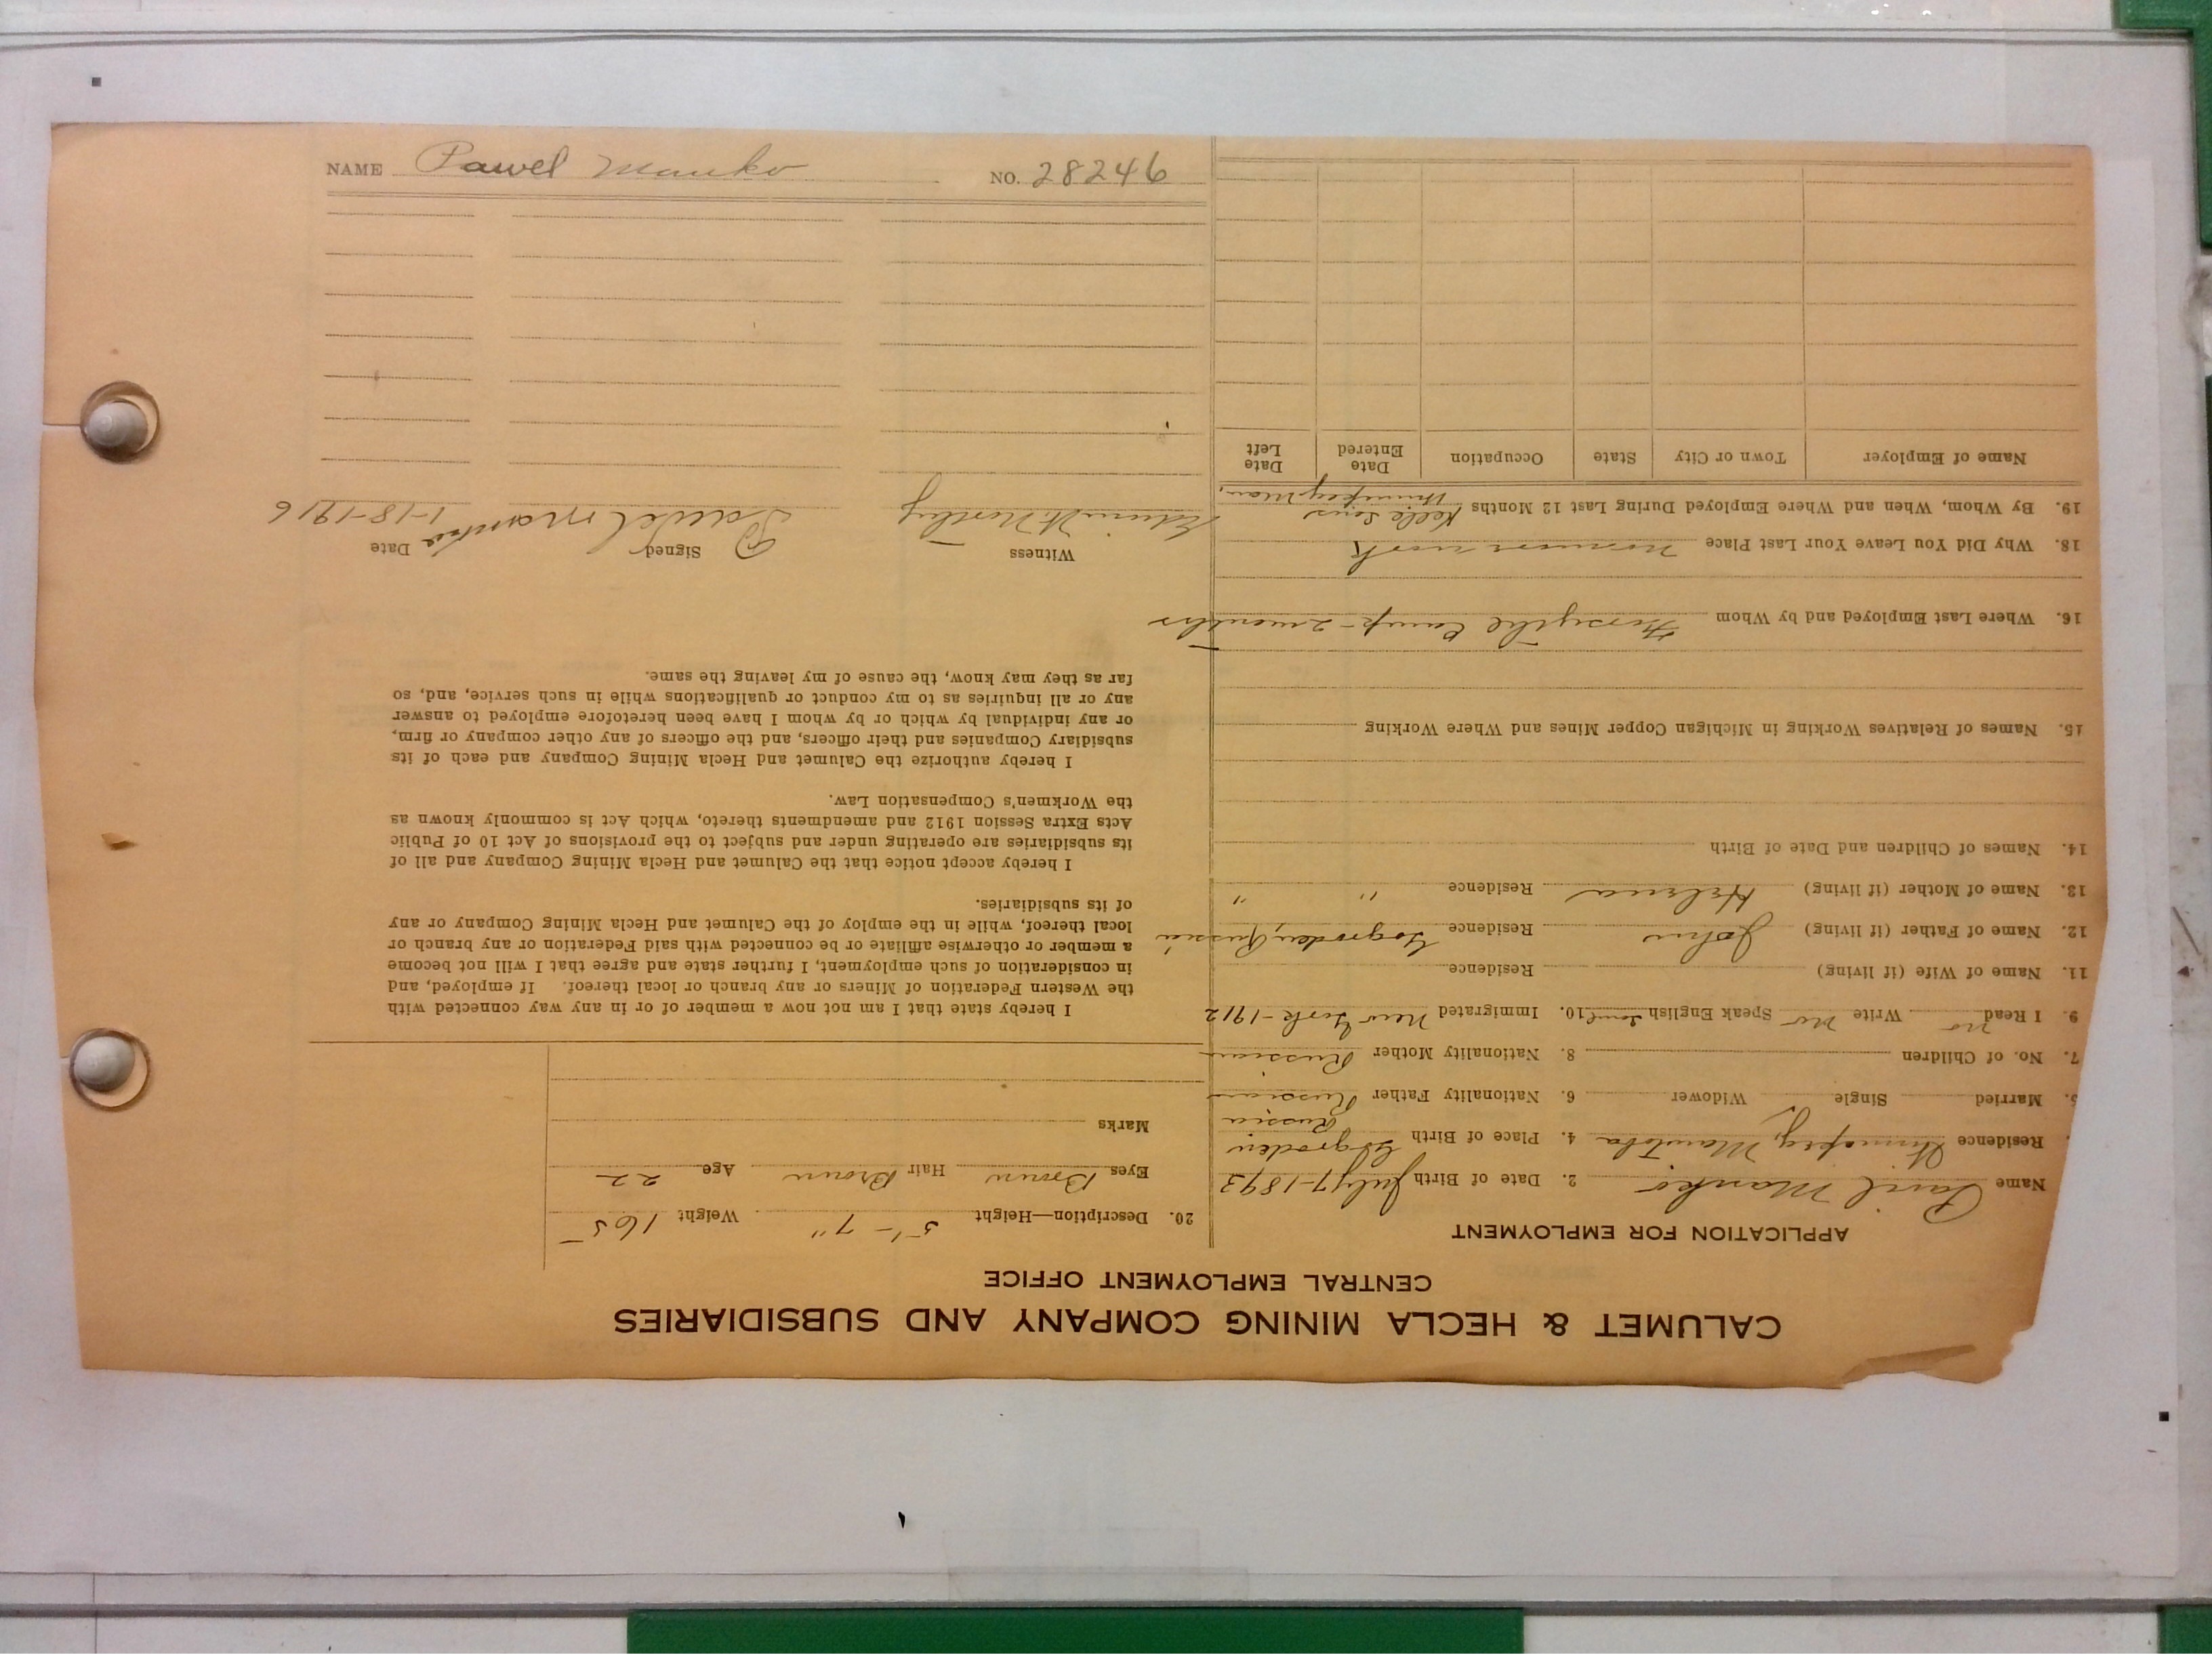 CALUMET & HECLA MINING COMPANY AND SUBSIDIARIES
CENTRAL EMPLOYMENT OFFICE
APPLICATION FOR EMPLOYMENT
Name Pavil Manko 2. Date of Birth July 7-1893
Residence Winnipeg, Manitoba 4. Place of Birth Gogroden
Russia
5. Married Single Widower 6. Nationality Father Russian
7. No. of Children 8. Nationality Mother Russian
9. I Read no Write no Speak English Some 10. Immigrated New York-1912
11. Name of Wife (if living) Residence
12. Name of Father (if living) John Residence Gogroden, Russia
13. Name of Mother (if living) Helena Residence " "
14. Names of Children and Date of Birth
15. Names of Relatives Working in Michigan Copper Mines and Where Working
16. Where Last Employed and by Whom Forsythe Camp-2 months
18. Why Did You Leave Your Last Place no more work
19. By Whom, When and Where Employed During Last 12 Months Sons
Winnipeg Man.
Name of Employer Town or City State Occupation Date Entered Date Left
20. Description—Height 5'-7" Weight 165
Eyes Brown Hair Brown Age 22
Marks
I hereby state that I am not now a member of or in any way connected with
the Western Federation of Miners or any branch or local thereof. If employed, and
in consideration of such employment, I further state and agree that I will not become
a member or otherwise affiliate or be connected with said Federation or any branch or
local thereof, while in the employ of the Calumet and Hecla Mining Company or any
of its subsidiaries.
I hereby accept notice that the Calumet and Hecla Mining Company and all of
its subsidiaries are operating under and subject to the provisions of Act 10 of Public
Acts Extra Session 1912 and amendments thereto, which Act is commonly known as
the Workmen's Compensation Law.
I hereby authorize the Calumet and Hecla Mining Company and each of its
subsidiary Companies and their officers, and the officers of any other company or firm,
or any individual by which or by whom I have been heretofore employed to answer
any or all inquiries as to my conduct or qualifications while in such service, and, so
far as they may know, the cause of my leaving the same.
Witness Signed Date
Edwin W. Pawel Manko 1-18-1916
NAME Pawel Manko NO. 28246